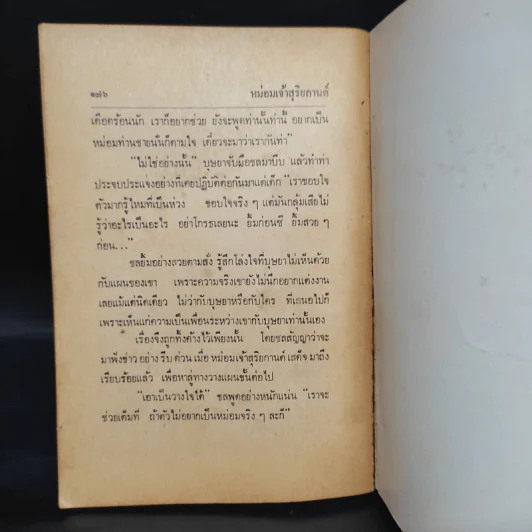 ๑๗๖ หม่อมเจ้าสุริยกานต์
เดือดร้อนนัก เราก็อยากช่วย ยังจะพูดท่านั้นท่านี้ อยากเป็น
หม่อมท่านชายนั่นก็ตามใจ เดี๋ยวจะมาว่าเรากันท่า”
“ไม่ใช่อย่างนั้น” บุษยาจับมือชลมาบีบ แล้วทำท่า
ประจบประแจงอย่างที่เคยปฏิบัติต่อกันมาแต่เด็ก “เราขอบใจ
ตัวมากรู้ไหมที่เป็นห่วง ขอบใจจริง ๆ แต่มันกลุ้มเสียไม่
รู้ว่าอะไรเป็นอะไร อย่าโกรธเลยนะ ยิ้มก่อนซี ยิ้มสวย ๆ
ก่อน...”
ชลยิ้มอย่างสวยตามสั่ง รู้สึกโล่งใจที่บุษยาไม่เห็นด้วย
กับแผนของเขา เพราะความจริงเขายังไม่นึกอยากแต่งงาน
เลยแม้แต่นิดเดียว ไม่ว่ากับบุษยาหรือกับใคร ที่เสนอไปก็
เพราะเห็นแก่ความเป็นเพื่อนระหว่างเขากับบุษยาเท่านั้นเอง
เรื่องจึงถูกทิ้งค้างไว้เพียงนั้น โดยชลสัญญาว่าจะ
มาฟังข่าวอย่างรีบด่วนเมื่อหม่อมเจ้าสุริยกานต์เสด็จมาถึง
เรียบร้อยแล้ว เพื่อหาลู่ทางวางแผนขั้นต่อไป
“เอาเป็นวางใจได้” ชลพูดอย่างหนักแน่น “เราจะ
ช่วยเต็มที่ ถ้าตัวไม่อยากเป็นหม่อมจริง ๆ ละก็”